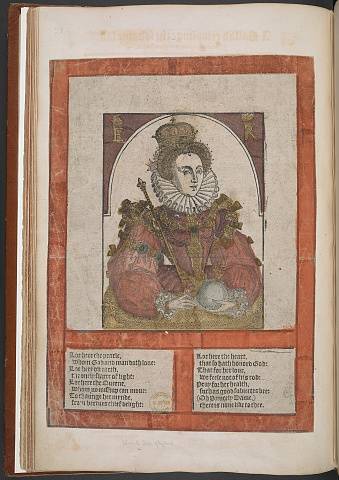 E R
Loe here the pearle,
whom God and man doth loue:
Loe here on earth,
the onely starre of light:
Loe here the Queene,
whom no mishap can moue:
To chaunge her mynde,
from vertues chief delight:
Loe here the heart,
that so hath honord God:
That for her loue,
we feele not of his rodde:
Pray for her health,
such as good subiectes bee:
(Oh Princely Dame,)
there is none like to thee.